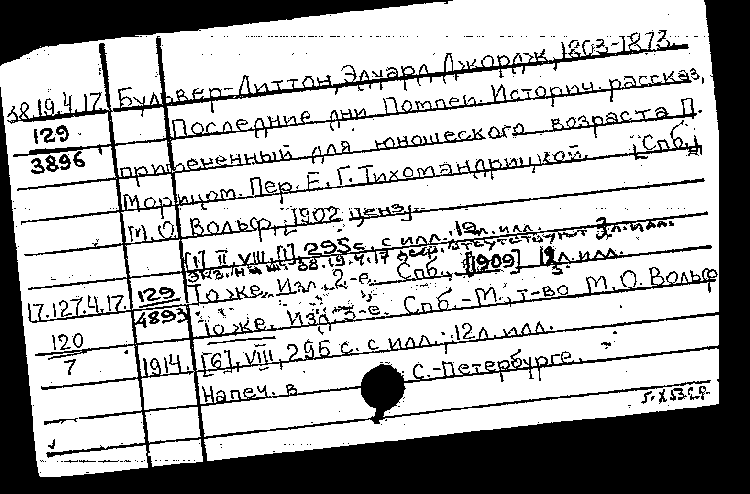 38.19.4.17. Бульвер-Литтон, Эдуард Джордж, 1803-1873.
129 Последние дни Помпеи. Историч. рассказ,
3896 примененный для юношеского возраста П.
Морицом. Пер. Е. Г. Тихомандрицкой. [Спб.,]
М. О. Вольф, [1902 ценз].
[1] II, VIII, [1], 295 с. с илл., 12 л. илл.
Экз. 38.19.4.17 3 л. илл.
17.127.4.17. 129 То же. Изд. 2-е. Спб., [1909] 12 л. илл.
120 4893 То же. Изд. 3-е. Спб.-М., т-во М. О. Вольф
7 1914. [6], VIII, 295 с. с илл.; 12 л. илл.
Напеч. в С.-Петербурге.